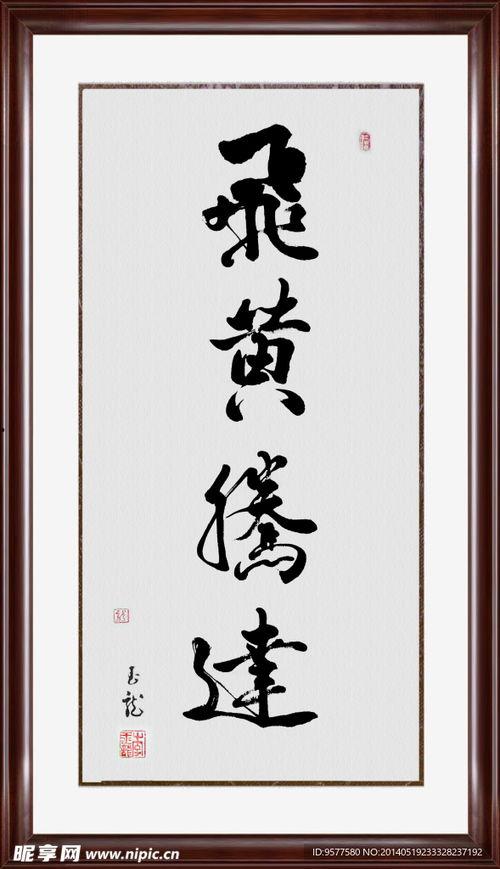 飛黄騰達
玉龍
昵享网 www.nipic.cn
ID:9577580 NO:20140519233328237192